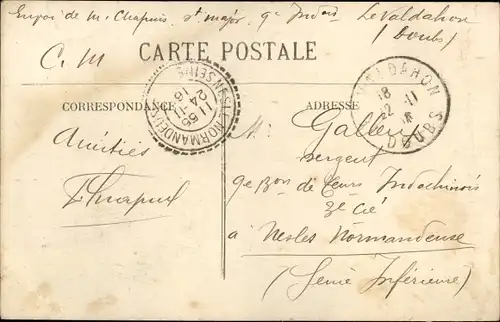 Envoi de M. Chapuis st major 9e Indoch Le Valdahon
(Doubs)
C. M
CARTE POSTALE
CORRESPONDANCE
ADRESSE
NESLE-NORMANDEUSE
11 55
24 -11
16
VALDAHON
18
22 -11
DOUBS
Amitiés
M.
Sergent
9e Bon de Tirrs Indochinois
3e Cie
a Nesles Normandeuse
(Seine Inférieure)